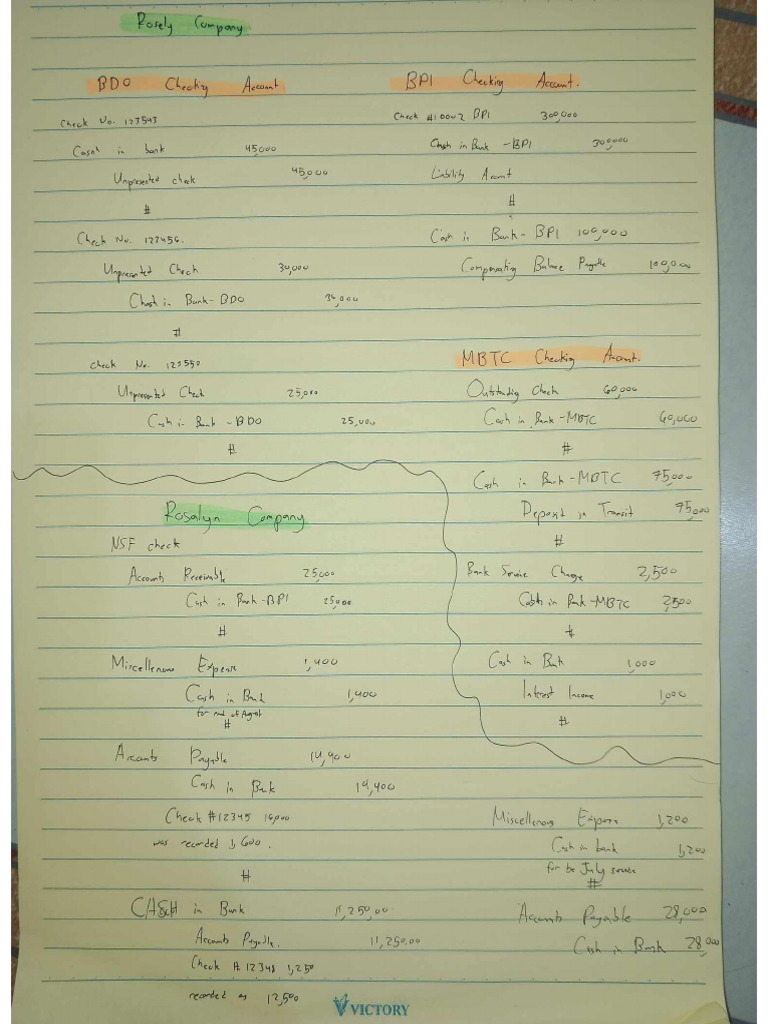 Rosely Company
BDO Checking Account
Check No. 123543
Casht in bank 45,000
Unpresented check 45,000
#
Check No. 123456.
Unpresented Check 30,000
Chash in Bank-BDO 30,000
#
Check No. 123550
Unpresented Check 25,000
Cash in Bank - BDO 25,000
#
BPI Checking Account.
Check #10002 BPI 300,000
Cash in Bank - BPI 300,000
Liability Acount
#
Cash in Bank - BPI 100,000
Compensating Balance Payable 100,000
MBTC Checking Account.
Outstanding Check 60,000
Cash in Bank - MBTC 60,000
#
Cash in Bank - MBTC 75,000
Deposit in Transit 75,000
#
Bank Service Charge 2,500
Cash in Bank - MBTC 2,500
#
Cash in Bank 1,000
Interest Income 1,000
#
Rosalyn Company
NSF check
Accounts Receivable 25,000
Cash in Bank - BPI 25,000
#
Miscellenous Expense 1,400
Cash in Bank 1,400
for end of August
#
Accounts Payable 14,400
Cash in Bank 14,400
Check #12345 16,000
was recorded 1,600.
#
CASH in Bank 11,250.00
Accounts Payable. 11,250.00
Check # 12348 1,250
recorded as 12,500
Miscellenous Expense 1,200
Cash in bank 1,200
for be July service
#
Accounts Payable 28,000
Cash in Bank 28,000
VICTORY